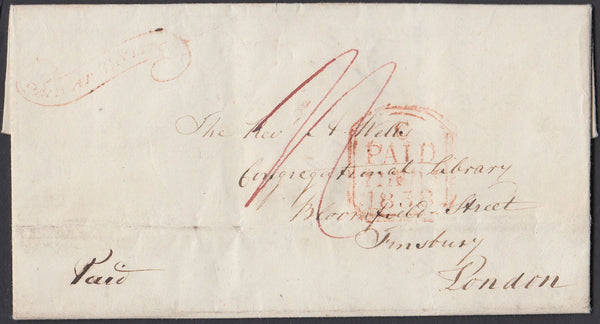 The Rev. A. Wells
Congregational Library
Bloomfield Street
Finsbury
London
Paid
C
PAID
1838